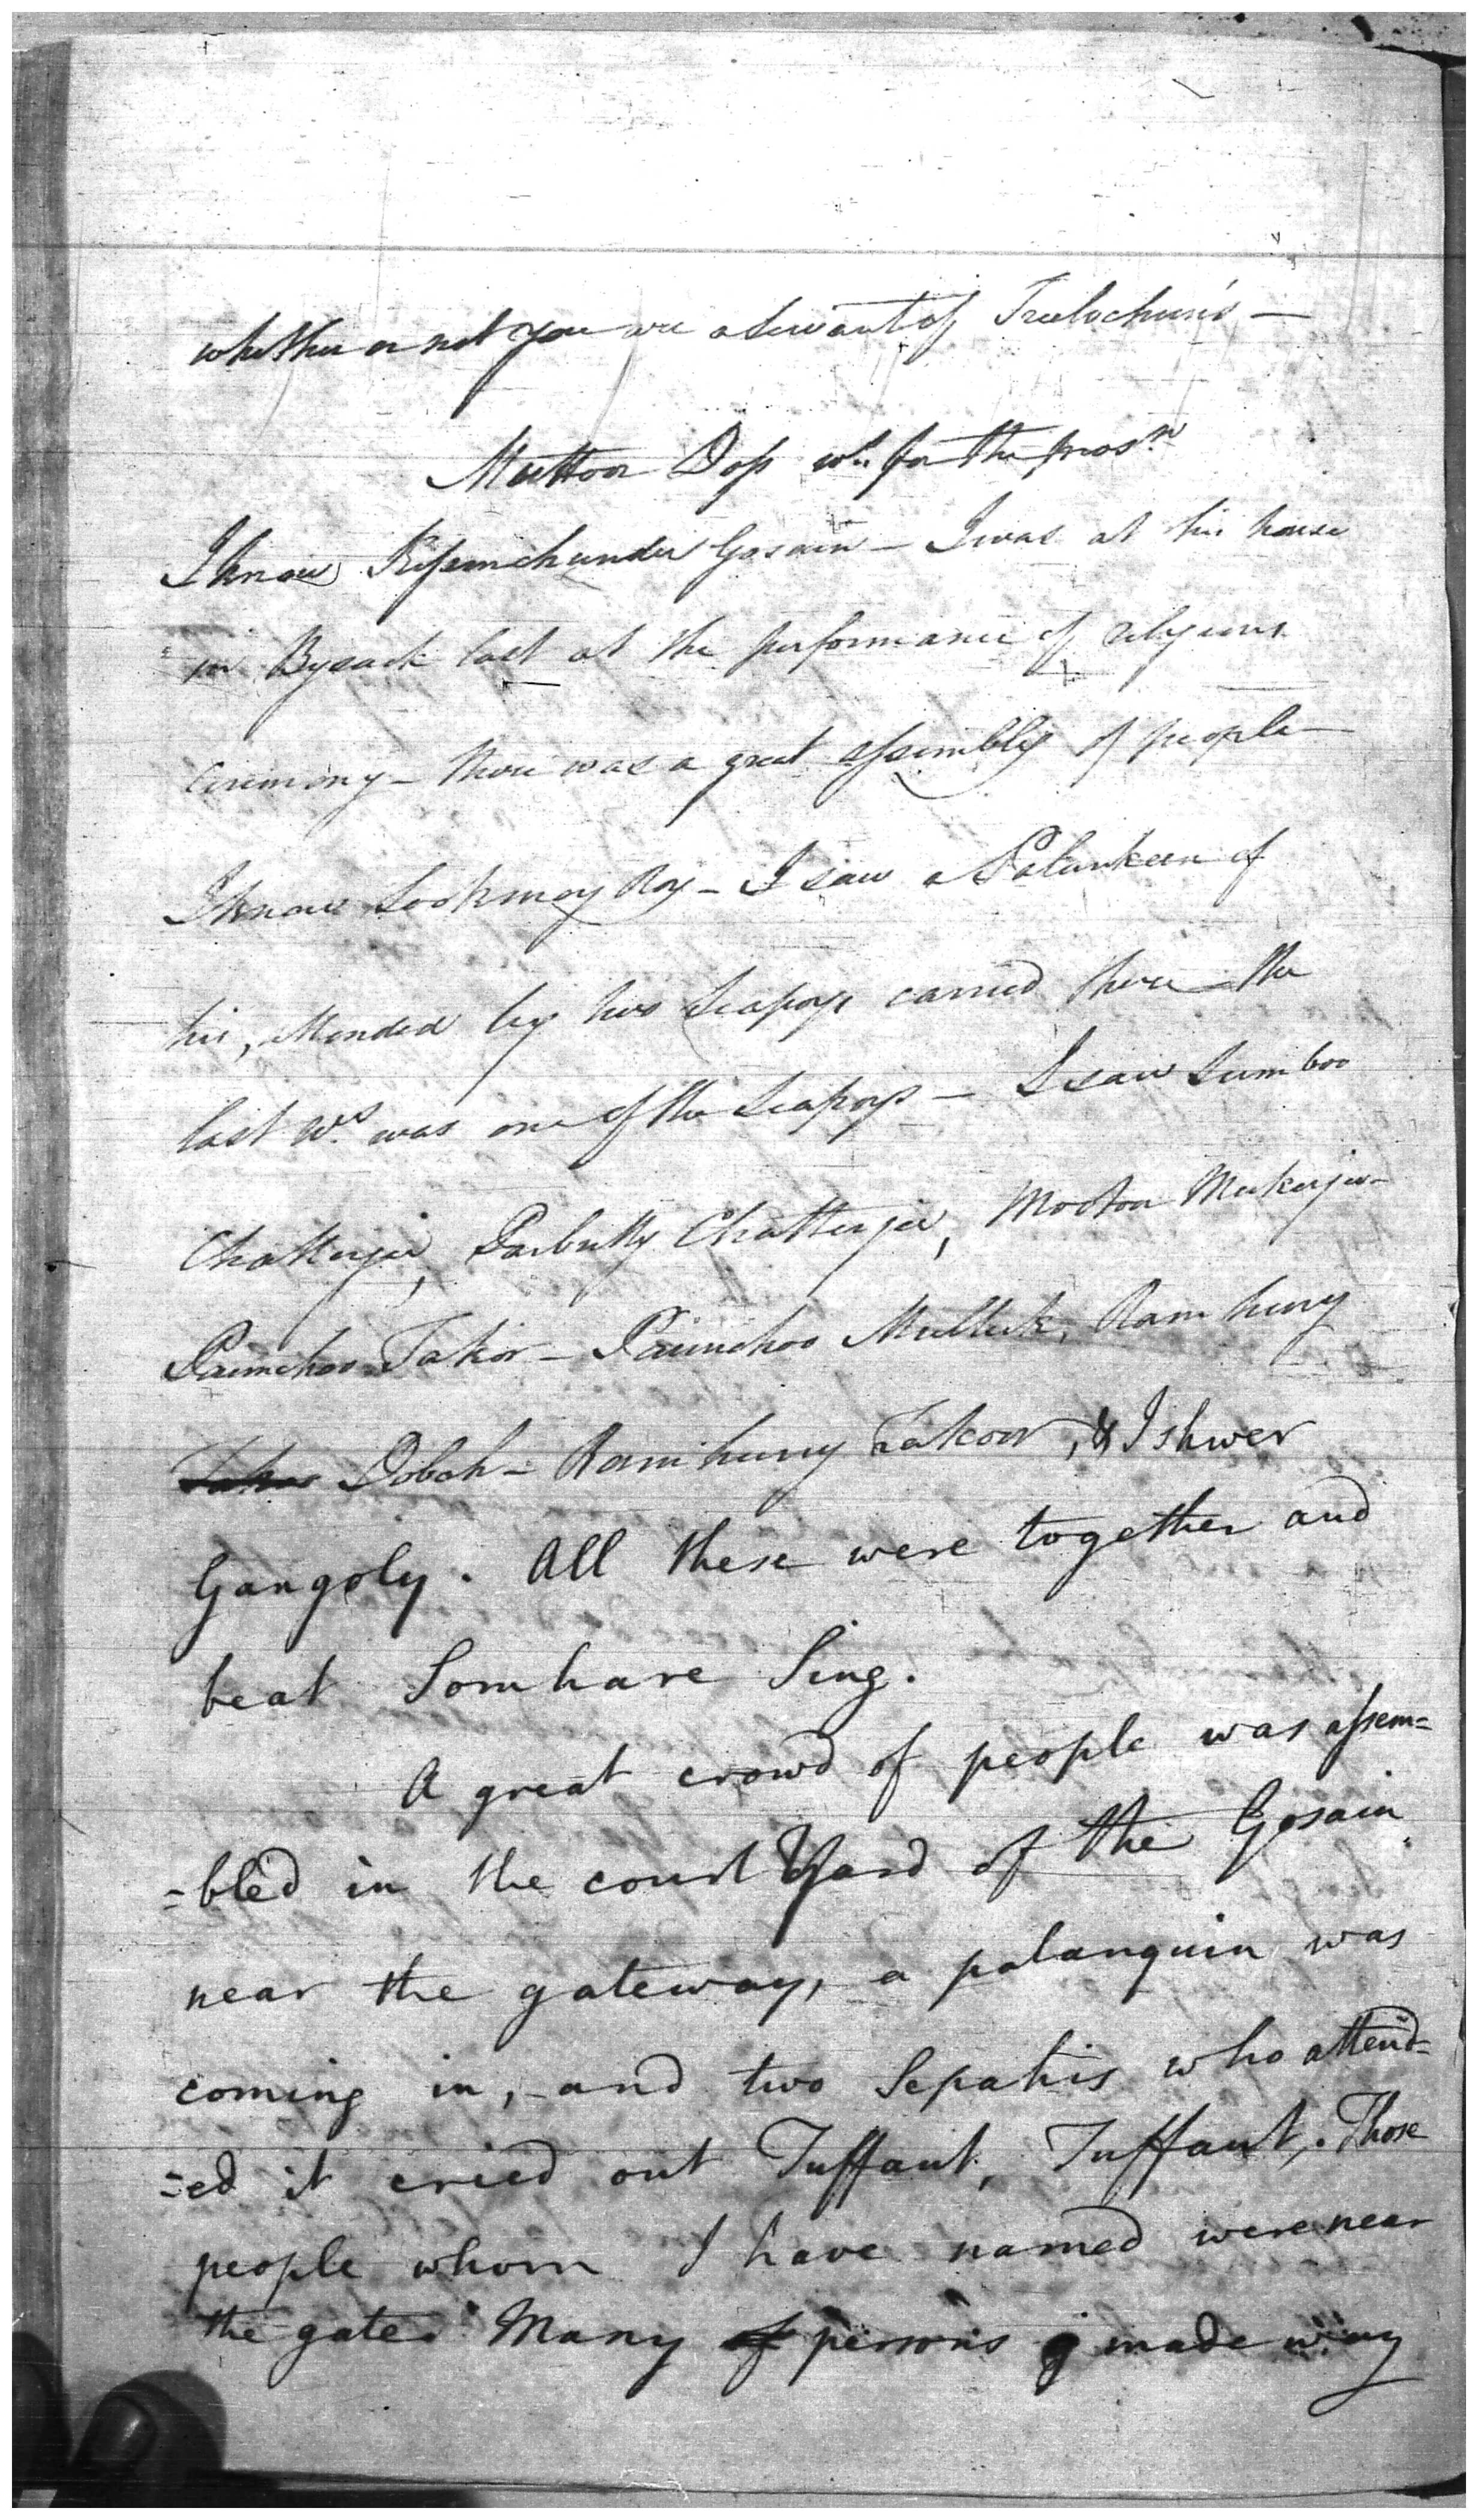 whether or not you are a Servant of Treelochun's —
Muttoor Doss ws. for the pros.n
I know Kissenchunder Gosain — I was at his house
in Bysack last at the performance of religious
ceremony — there was a great assembly of people —
I know Sookmoy Roy — I saw a Palankeen of
his, attended by two Seapoys carried there — the
last Ws. was one of the Seapoys — I saw Sumboo
Chatterjee, Parbutty Chatterjee, Mooton Mukerjee —
Paunchoo Takor — Paunchoo Mulluck, Ram hurry
Dobah — Ramhurry Takoor, & Ishwer
Gangoly. All these were together and
beat Somhare Sing.
A great crowd of people was assem=
=bled in the court Yard of the Gosain
near the gateway, a palanquin was
coming in, and two Sepahis who attend=
=ed it cried out Tuffaut, Tuffaut,. Those
people whom I have named were near
the gate. Many of persons made way